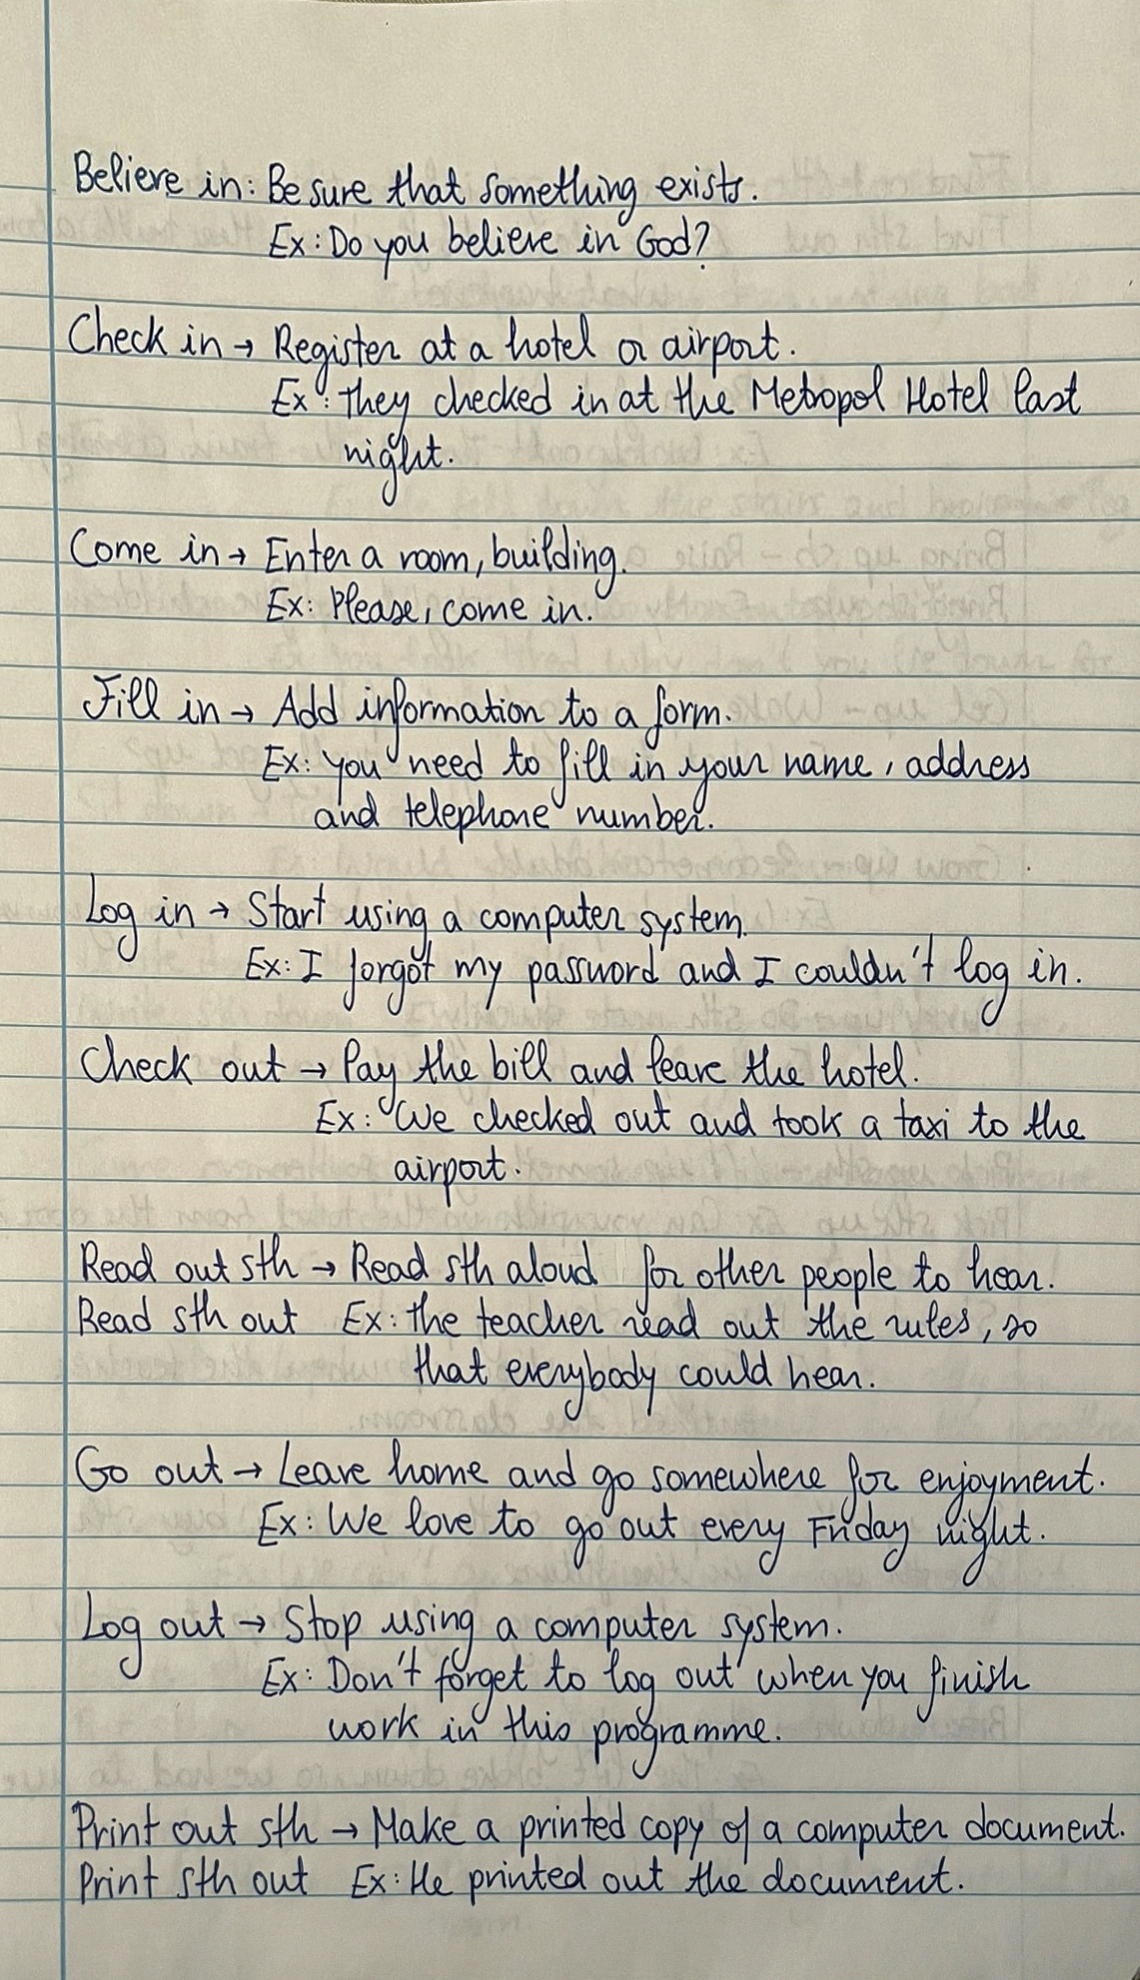 Believe in: Be sure that something exists.
Ex: Do you believe in God?
Check in → Register at a hotel or airport.
Ex: They checked in at the Metropol Hotel last
night.
Come in → Enter a room, building.
Ex: Please, come in.
Fill in → Add information to a form.
Ex: You need to fill in your name, address
and telephone number.
Log in → Start using a computer system.
Ex: I forgot my password and I couldn't log in.
Check out → Pay the bill and leave the hotel.
Ex: We checked out and took a taxi to the
airport.
Read out sth → Read sth aloud for other people to hear.
Read sth out Ex: the teacher read out the rules, so
that everybody could hear.
Go out → Leave home and go somewhere for enjoyment.
Ex: We love to go out every Friday night.
Log out → Stop using a computer system.
Ex: Don't forget to log out when you finish
work in this programme.
Print out sth → Make a printed copy of a computer document.
Print sth out Ex: He printed out the document.